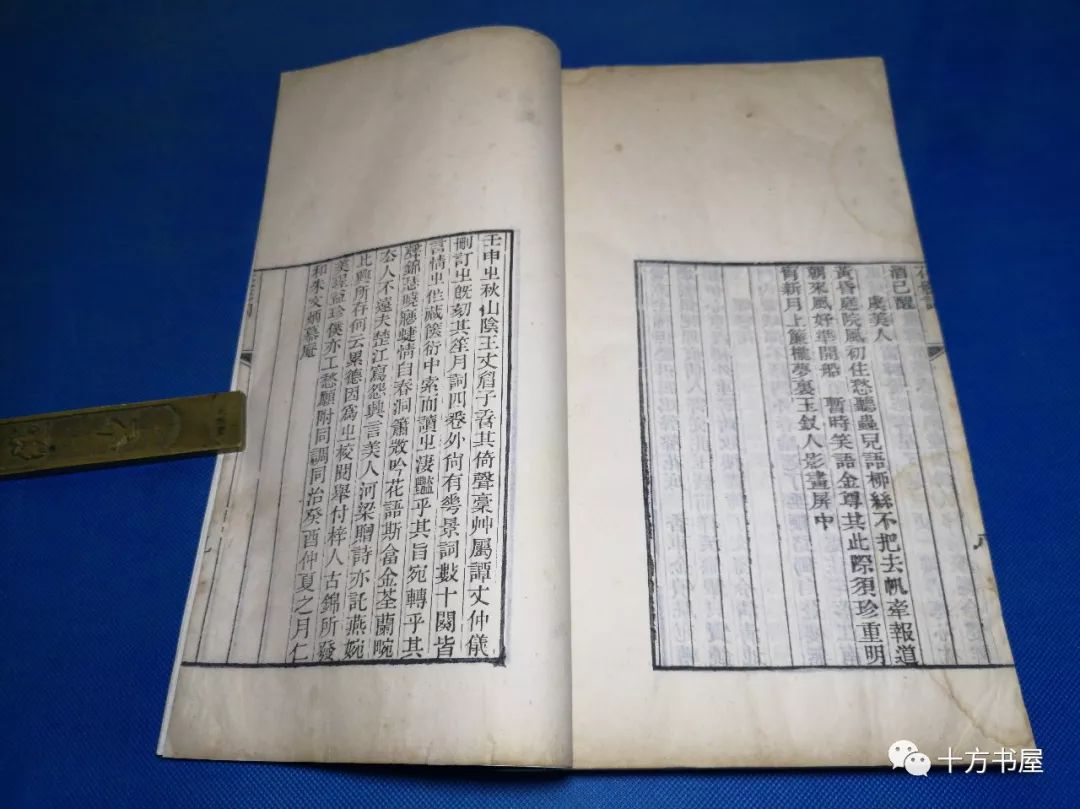 酒已醒
虞美人
黃昏庭院風初住愁聽蟲兒語柳絲不把去帆牽報道
朝來風好華開船 暫時笑語金尊其此際須珍重明
宵新月上簾櫳夢裏玉釵人影畫屏中
八
壬申㞢秋山陰王丈眉子善其倚聲豪艸屬譚丈仲儀
刪訂㞢旣刻其笙月詞四卷外尙有景詞數十闋皆
言情㞢作藏篋衍中索而讀㞢淒豔乎其旨宛轉乎其
錦瑟曉情自春洞簫散吟花語斯畣金荃蘭畹
厺人不遠夫楚江寫怨興言美人河梁贈詩亦託燕婉
比興所存何云累德因爲㞢校閱舉付梓人古錦所發
益珍僕亦工愁願附同調同治癸酉仲夏之月仁
和朱文慕庵
十方书屋